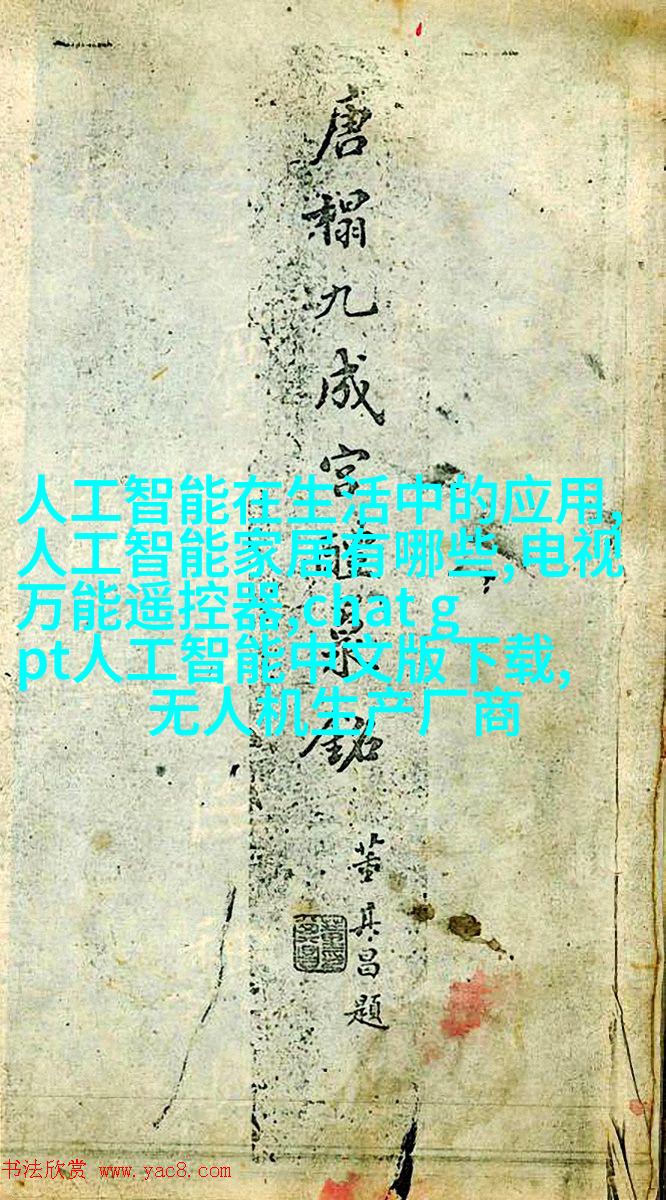 唐榻九成宫醴泉銘
董其昌題
人工智能在生活中的应用,
人工智能家居有哪些,电视
万能遥控器,chat g
pt人工智能中文版下载,
无人机生产厂商
书法欣赏 www.yac8.com